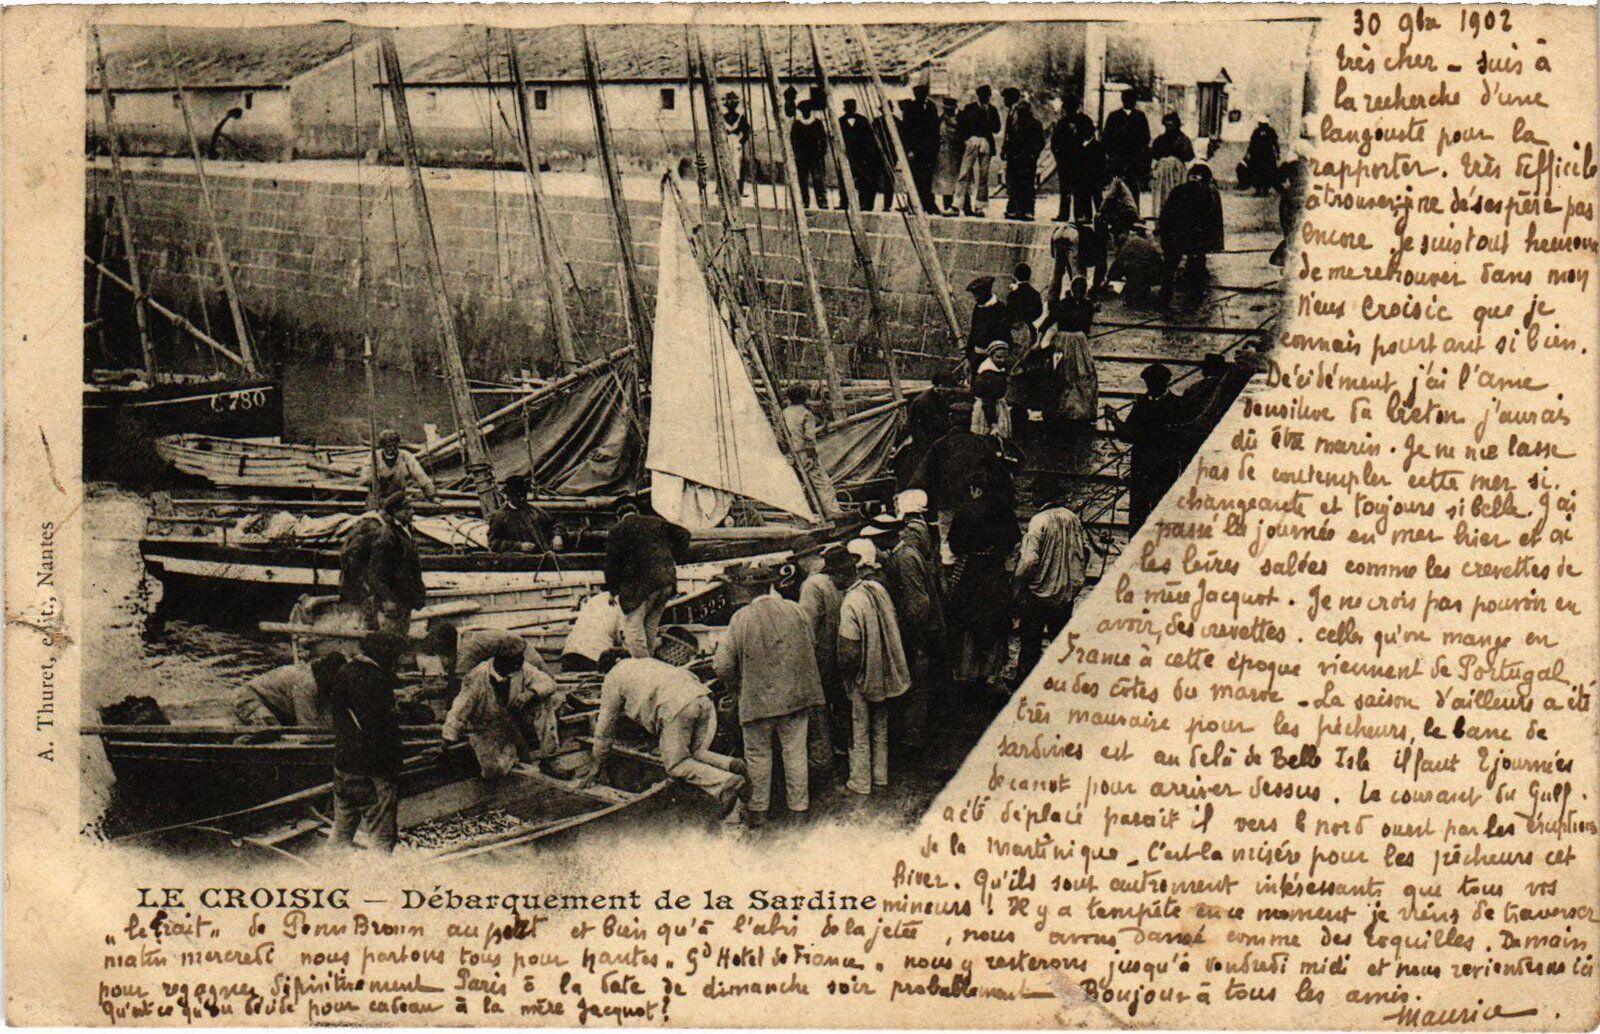 30 9bre 1902
très cher - suis à
la recherche d'une
langouste pour la
rapporter. très difficile
à trouver, je ne désespère pas
encore. je suis tout heureux
de me retrouver dans mon
vieux Croisic que je
connais pourtant si bien.
Décidément j'ai l'ame
sensitive du breton j'aurais
dû être marin. Je ne me lasse
pas de contempler cette mer si
changeante et toujours si belle. J'ai
passé la journée en mer hier et ai
les lèvres salées comme les crevettes de
la mère Jacquot. Je ne crois pas pouvoir en
avoir, des crevettes. celles qu'on mange en
France à cette époque viennent de Portugal
ou des côtes du maroc - La saison d'ailleurs a été
très mauvaise pour les pêcheurs, le banc de
sardines est au delà de Belle Isle il faut 2 journées
de canot pour arriver dessus. Le courant du Gulf.
a été déplacé parait il vers le nord ouest par les éruptions
de la Martinique - C'est la misère pour les pêcheurs cet
hiver. Qu'ils sont autrement intéressants que tous vos
LE CROISIC – Débarquement de la Sardine
mineurs ! Il y a tempête en ce moment je viens de traverser
„ le Trait „ de Penn Bronn au petit et bien qu'à l'abri de la jetée, nous avons dansé comme des coquilles. Demain
matin mercredi nous partons tous pour Nantes „ Gd Hotel de France „ nous y resterons jusqu'à vendredi midi et nous reviendrons ici
pour regagner définitivement Paris à la date de dimanche soir probablement Bonjour à tous les amis.
Qu'est ce qu'on décide pour cadeau à la mère Jacquot ?
Maurice.
A. Thuret, edit., Nantes
C 780
2
525